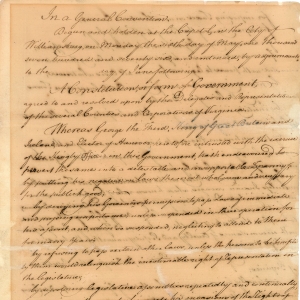 In a General Convention.
Begun and holden at the Capitol, in the City of
Williamsburg, on Monday the sixth day of May, one thousand
seven hundred and seventy six, and continued, by adjournments
to the day of June following.
A Constitution, or form of Government,
agreed to and resolved upon by the Delegates and Representatives
of the several Counties and Corporations of Virginia.
Whereas George the Third, King of Great Britain and
Ireland, and Elector of Hanover, heretofore intrusted with the exercise
of the Kingly Office in this Government, hath endeavoured to
pervert the same into a detestable and insupportable Tyranny by
putting his negative on Laws the most wholesome and necessary
for the publick good;
by denying his Governours permission to pass Laws of immediate
and pressing importance, unless suspended in their operation for
his assent, and when so suspended, neglecting to attend to them
for many Years;
by refusing to pass certain other Laws, unless the persons to be benefited
by them would relinquish the inalienable right of representation in
the legislature;
by dissolving legislative Assemblies repeatedly and continually